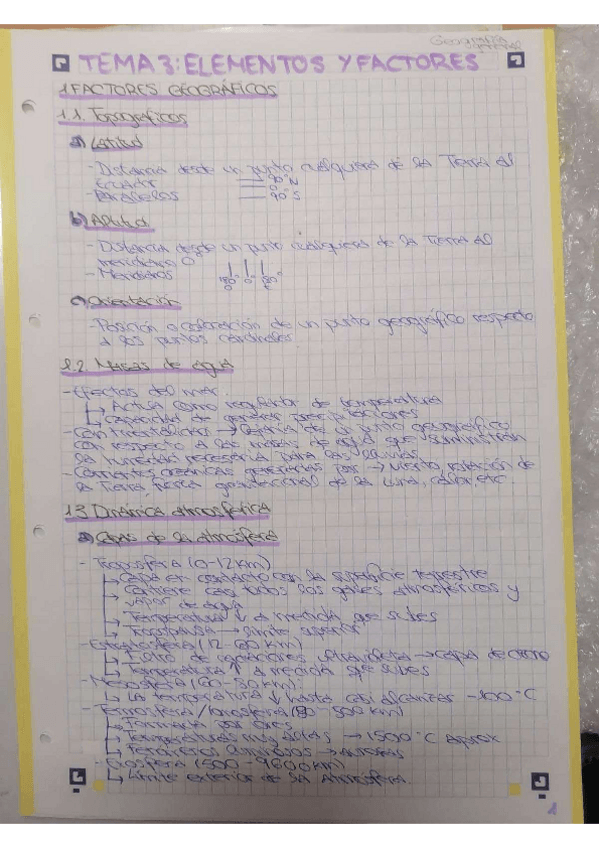 Geografía
TEMA 3: ELEMENTOS Y FACTORES
1 FACTORES GEOGRÁFICOS
1.1. Topográficos
a) Latitud
- Distancia desde un punto cualquiera de la Tierra al
Ecuador
90°N
0°
- Paralelos
90°S
b) Altitud
- Distancia desde un punto cualquiera de la Tierra al
meridiano 0
- Meridianos
180° 0° 180°
c) Orientación
- Posición o colocación de un punto geográfico respecto
a los puntos cardinales.
1.2. Masas de agua
- Efectos del mar:
↳ Actúa como regulador de temperatura
↳ Capacidad de generar precipitaciones
- Continentalidad → lejanía de un punto geográfico
con respecto a las masas de agua que suministran
la humedad necesaria para las lluvias.
- Corrientes oceánicas generadas por → viento, rotación de
la Tierra, fuerza gravitacional de la luna, calor, etc.
1.3 Dinámica atmosférica
a) Capas de la atmósfera
- Troposfera (0-12 km)
↳ Capa en contacto con la superficie terrestre
↳ Contiene casi todos los gases atmosféricos y
vapor de agua
↳ Temperatura ↓ a medida que subes
↳ Tropopausa → límite superior
- Estratosfera (12-60 km)
↳ Filtro de radiaciones ultravioleta → capa de ozono
↳ Temperatura ↑ a medida que subes
- Mesosfera (60-80 km)
↳ La temperatura ↓ hasta casi alcanzar -100°C
- Termosfera/Ionosfera (80-500 km)
↳ Formada por iones
↳ Temperaturas muy altas → 1500°C aprox
↳ Fenómenos luminosos → auroras
- Exosfera (500-9600 km)
↳ Límite exterior de la atmósfera.
1